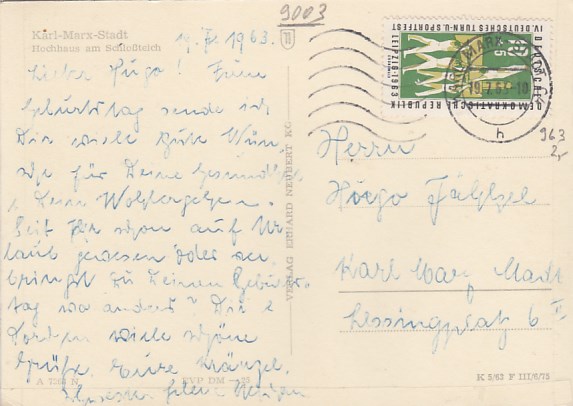 9003
Karl-Marx-Stadt
Hochhaus am Schloßteich
1963.
Lieber Hugo! Zum
Geburtstag sende ich
Dir viele gute Wün
sche für Deine Gesundheit
u. Dein Wohlergehen.
Seit Ihr schon auf Ur
laub gewesen oder ver
bringst Du Deinen Geburts-
tag wo anders? Dir u
viele schöne
Grüße. Eure
VERLAG ERHARD NEUBERT KG
A 1263 N
EVP DM -,25
IV. DEUTSCHES TURN- U. SPORTFEST
LEIPZIG 1963
DEUTSCHE DEMOKRATISCHE REPUBLIK
KARL-MARX-
h
963
2,-
Herrn
Hugo
Karl Marx Stadt
Lessingplatz 6 II
K 5/63 F III/6/75